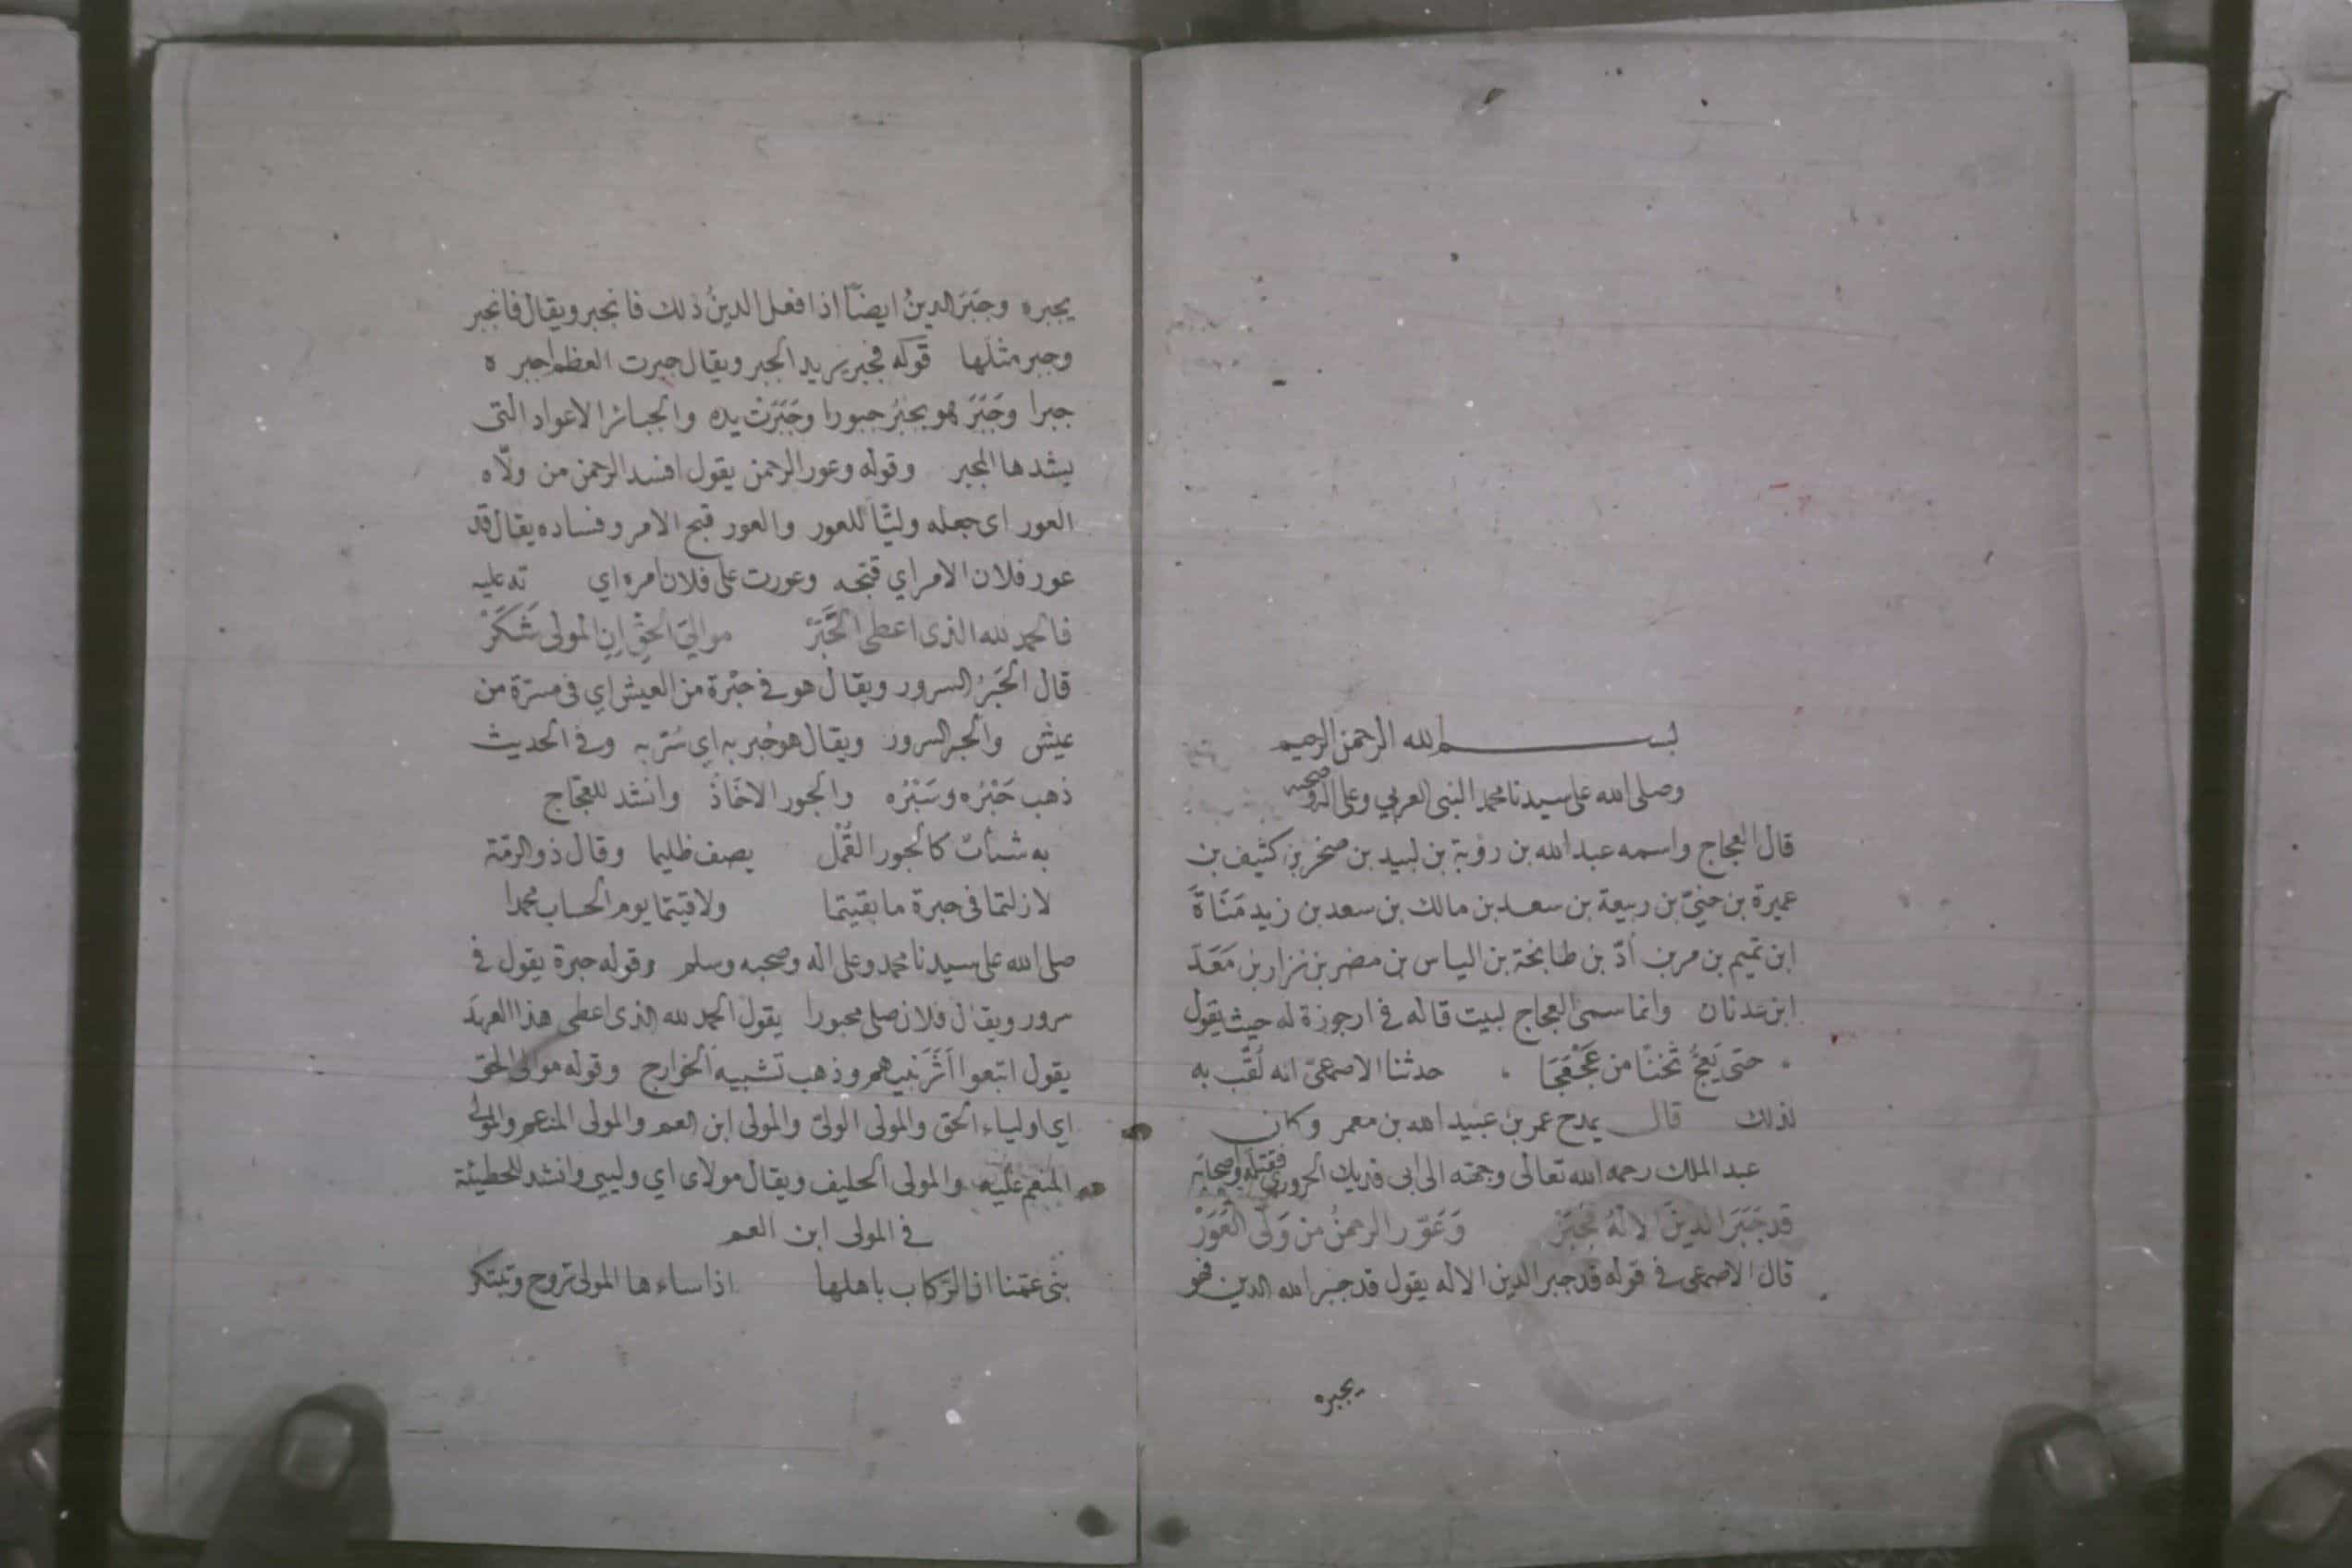 بسم الله الرحمن الرحيم
وصلى الله على سيدنا محمد النبى العربي وعلى اله وصحبه
قال العجاج واسمه عبد الله بن رؤبة بن لبيد بن صخر بن كثيف بن
عميرة بن حنيّ بن ربيعة بن سعد بن مالك بن سعد بن زيد مَنَاةَ
ابن تميم بن مر بن أدّ بن طابخة بن الياس بن مضر بن نزار بن مَعَدّ
ابن عدنان وانما سمى العجاج لبيت قاله فى ارجوزة له حيث يقول
حتى يَعِجَّ ثَخَنًا من عَجْعَجَا حدثنا الاصمعىّ انه لُقّب به
لذلك قال يمدح عمر بن عبيد الله بن معمر وكان
عبد الملك رحمه الله تعالى وجهه الى ابى فديك الحرورى فقتله واصحابه
قد جَبَرَ الدينَ الالهُ فجَبَرْ وَعَوّر الرحمنُ من وَلّى العَوَرْ
قال الاصمعى فى قوله قد جبر الدين الاله يقول قد جبر الله الدين فهو
يجبره
يجبره وجَبَرَ الدينُ ايضًا اذا فعل الدينُ ذلك فانجبر ويقال فانجبر
وجبر مثلها قوله فجبر يريد الجبر ويقال جبرت العظم اجبره
جبرا وجَبَرَ هو يجبُر جبورا وجَبَرَتْ يده والجبائر الاعواد التى
يشدها المجبر وقوله وعور الرحمن يقول افسد الرحمن من ولّاه
العور اى جعله وليًّا للعور والعور قبح الامر وفساده يقال قد
عور فلان الامر اي قبّحه وعورت على فلان امره اي ته عليه
فالحمد لله الذى اعطى الحَبَرْ موالىَ الحقِّ إن المولى شَكَرْ
قال الحَبَرُ السرور ويقال هو في حبْرة من العيش اي فى مسرّة من
عيش والحبر السرور ويقال هو حُبر به اي سُرّ به وفى الحديث
ذهب حَبْرُه وسَبْرُه والحبور الاخّاذُ وانشد للعجاج
به كالحبور القُمْل يصف ظليما وقال ذو الرمّة
لا زلتما فى حبرة ما بقيتما ولاقيتما يوم الحساب محمدا
صلى الله على سيدنا محمد وعلى اله وصحبه وسلم وقوله حبرة يقول فى
سرور ويقال فلان صلى محبورا يقول الحمد لله الذى اعطى هذا العهدَ
يقول اتبعوا أَثَرَ نبيهم وذهب تشبيه الخوارج وقوله موالى الحق
اي اولياء الحق والمولى الولىّ والمولى ابن العم والمولى المنعم والمولى
المنعم عليه والمولى الحليف ويقال مولاى اي وليي وانشد للحطيئة
فى المولى ابن العم
بنى عمّنا ان الرّكاب باهلها اذا ساءها المولى تروح وتبتكر